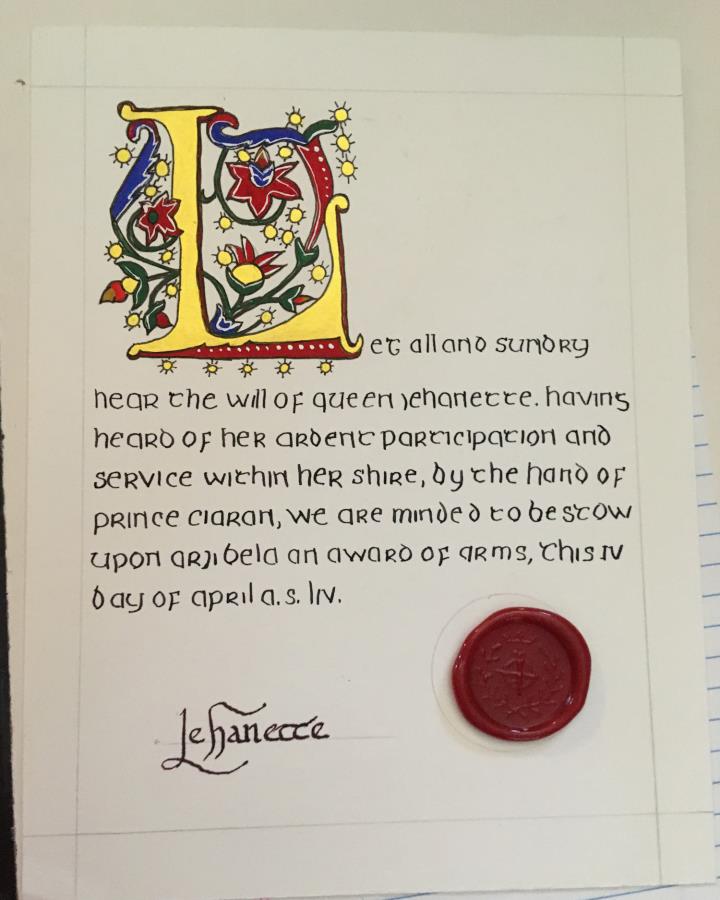 Let all and sundry
hear the will of queen Jehanette. having
heard of her ardent participation and
service within her shire, by the hand of
prince ciaran, we are minded to bestow
upon arjibela an award of arms, this IV
day of april a.s. LIV.
Jehanette